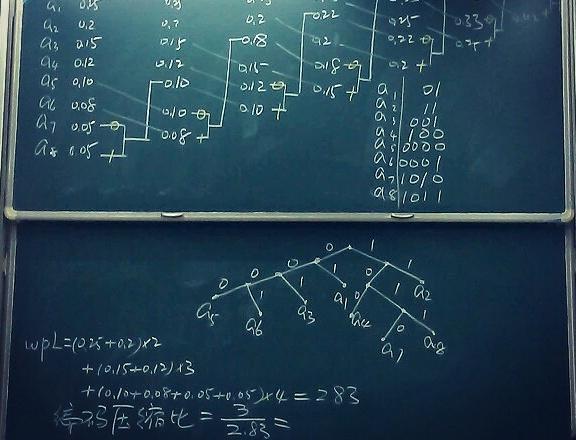 a1 0.25 0.25
a2 0.2 0.2 0.2 0.22 0.25 0.33
a3 0.15 0.15 0.18 0.2 0.22 0.25
a4 0.12 0.12 0.15 0.18 0.2
a5 0.10 0.10 0.12 0.15
a6 0.08 0.10 0.10
a7 0.05 0.08
a8 0.05
a1 01
a2 11
a3 001
a4 100
a5 0000
a6 0001
a7 1010
a8 1011
0 1
0 1 0 1
0 1 0 1 a2
0 1 a3 a1 a4 0 1
a5 a6 a7 a8
WPL=(0.25+0.2)×2
+(0.15+0.12)×3
+(0.10+0.08+0.05+0.05)×4=2.83
编码压缩比=3/2.83=